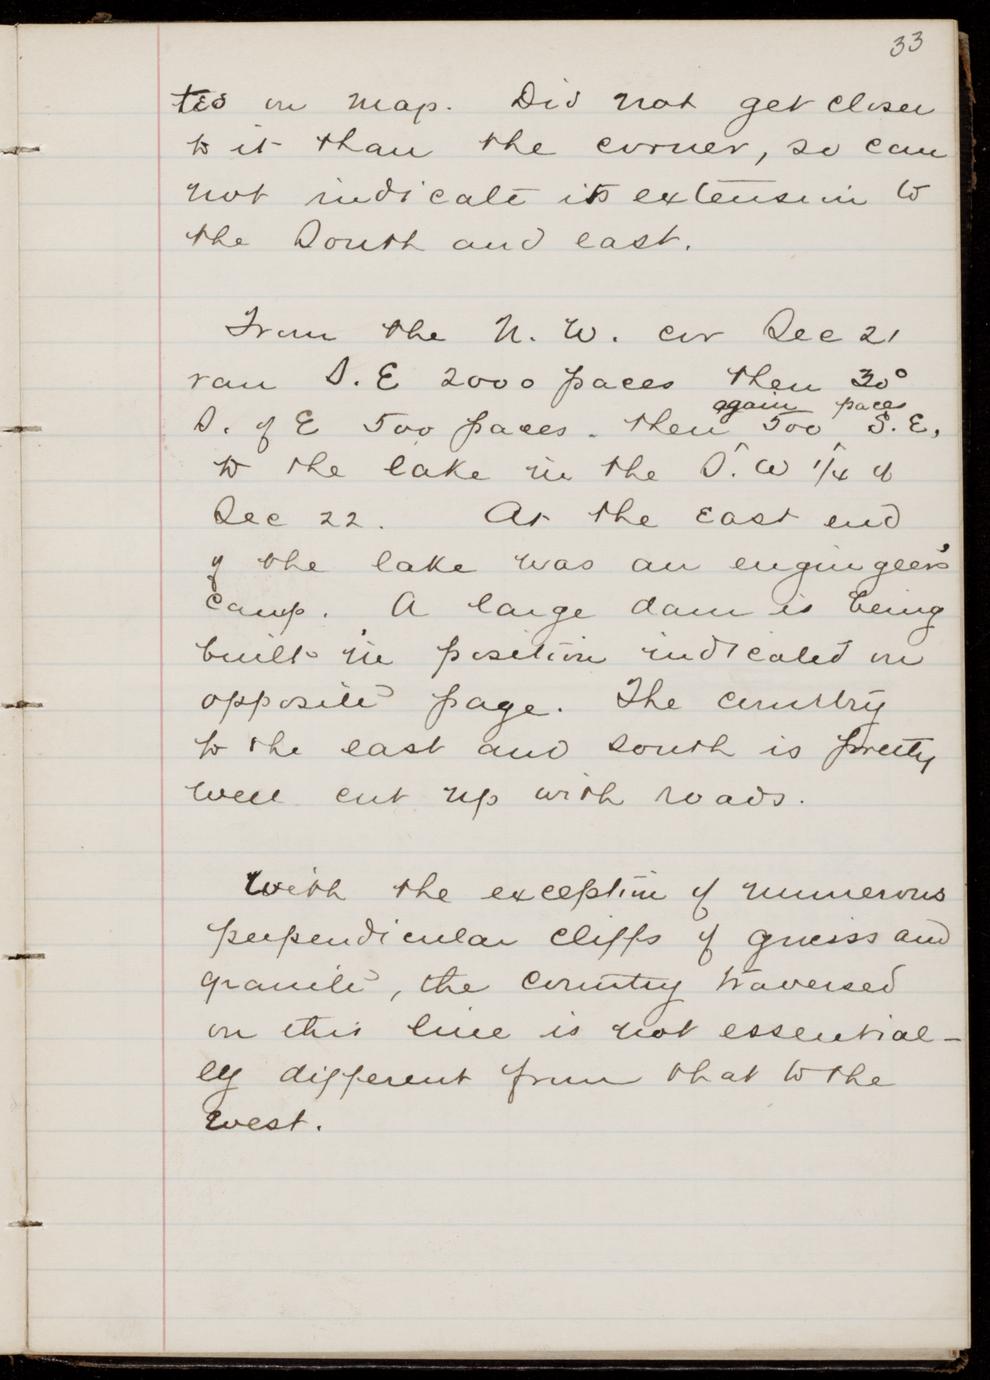 33
ted on map. Did not get closer
to it than the corner, so can
not indicate its extension to
the South and east.
From the N. W. cor Sec 21
ran S. E 2000 paces then 30°
again paces
S. of E 500 paces. then 500 S. E,
to the lake in the S. W 1/4 of
Sec 22. At the east end
of the lake was an engingeer's
camp. A large dam is being
built in position indicated on
opposite page. The country
to the east and south is pretty
well cut up with roads.
With the exception of numerous
perpendicular cliffs of gneiss and
granite, the country traversed
on this line is not essential-
ly different from that to the
west.